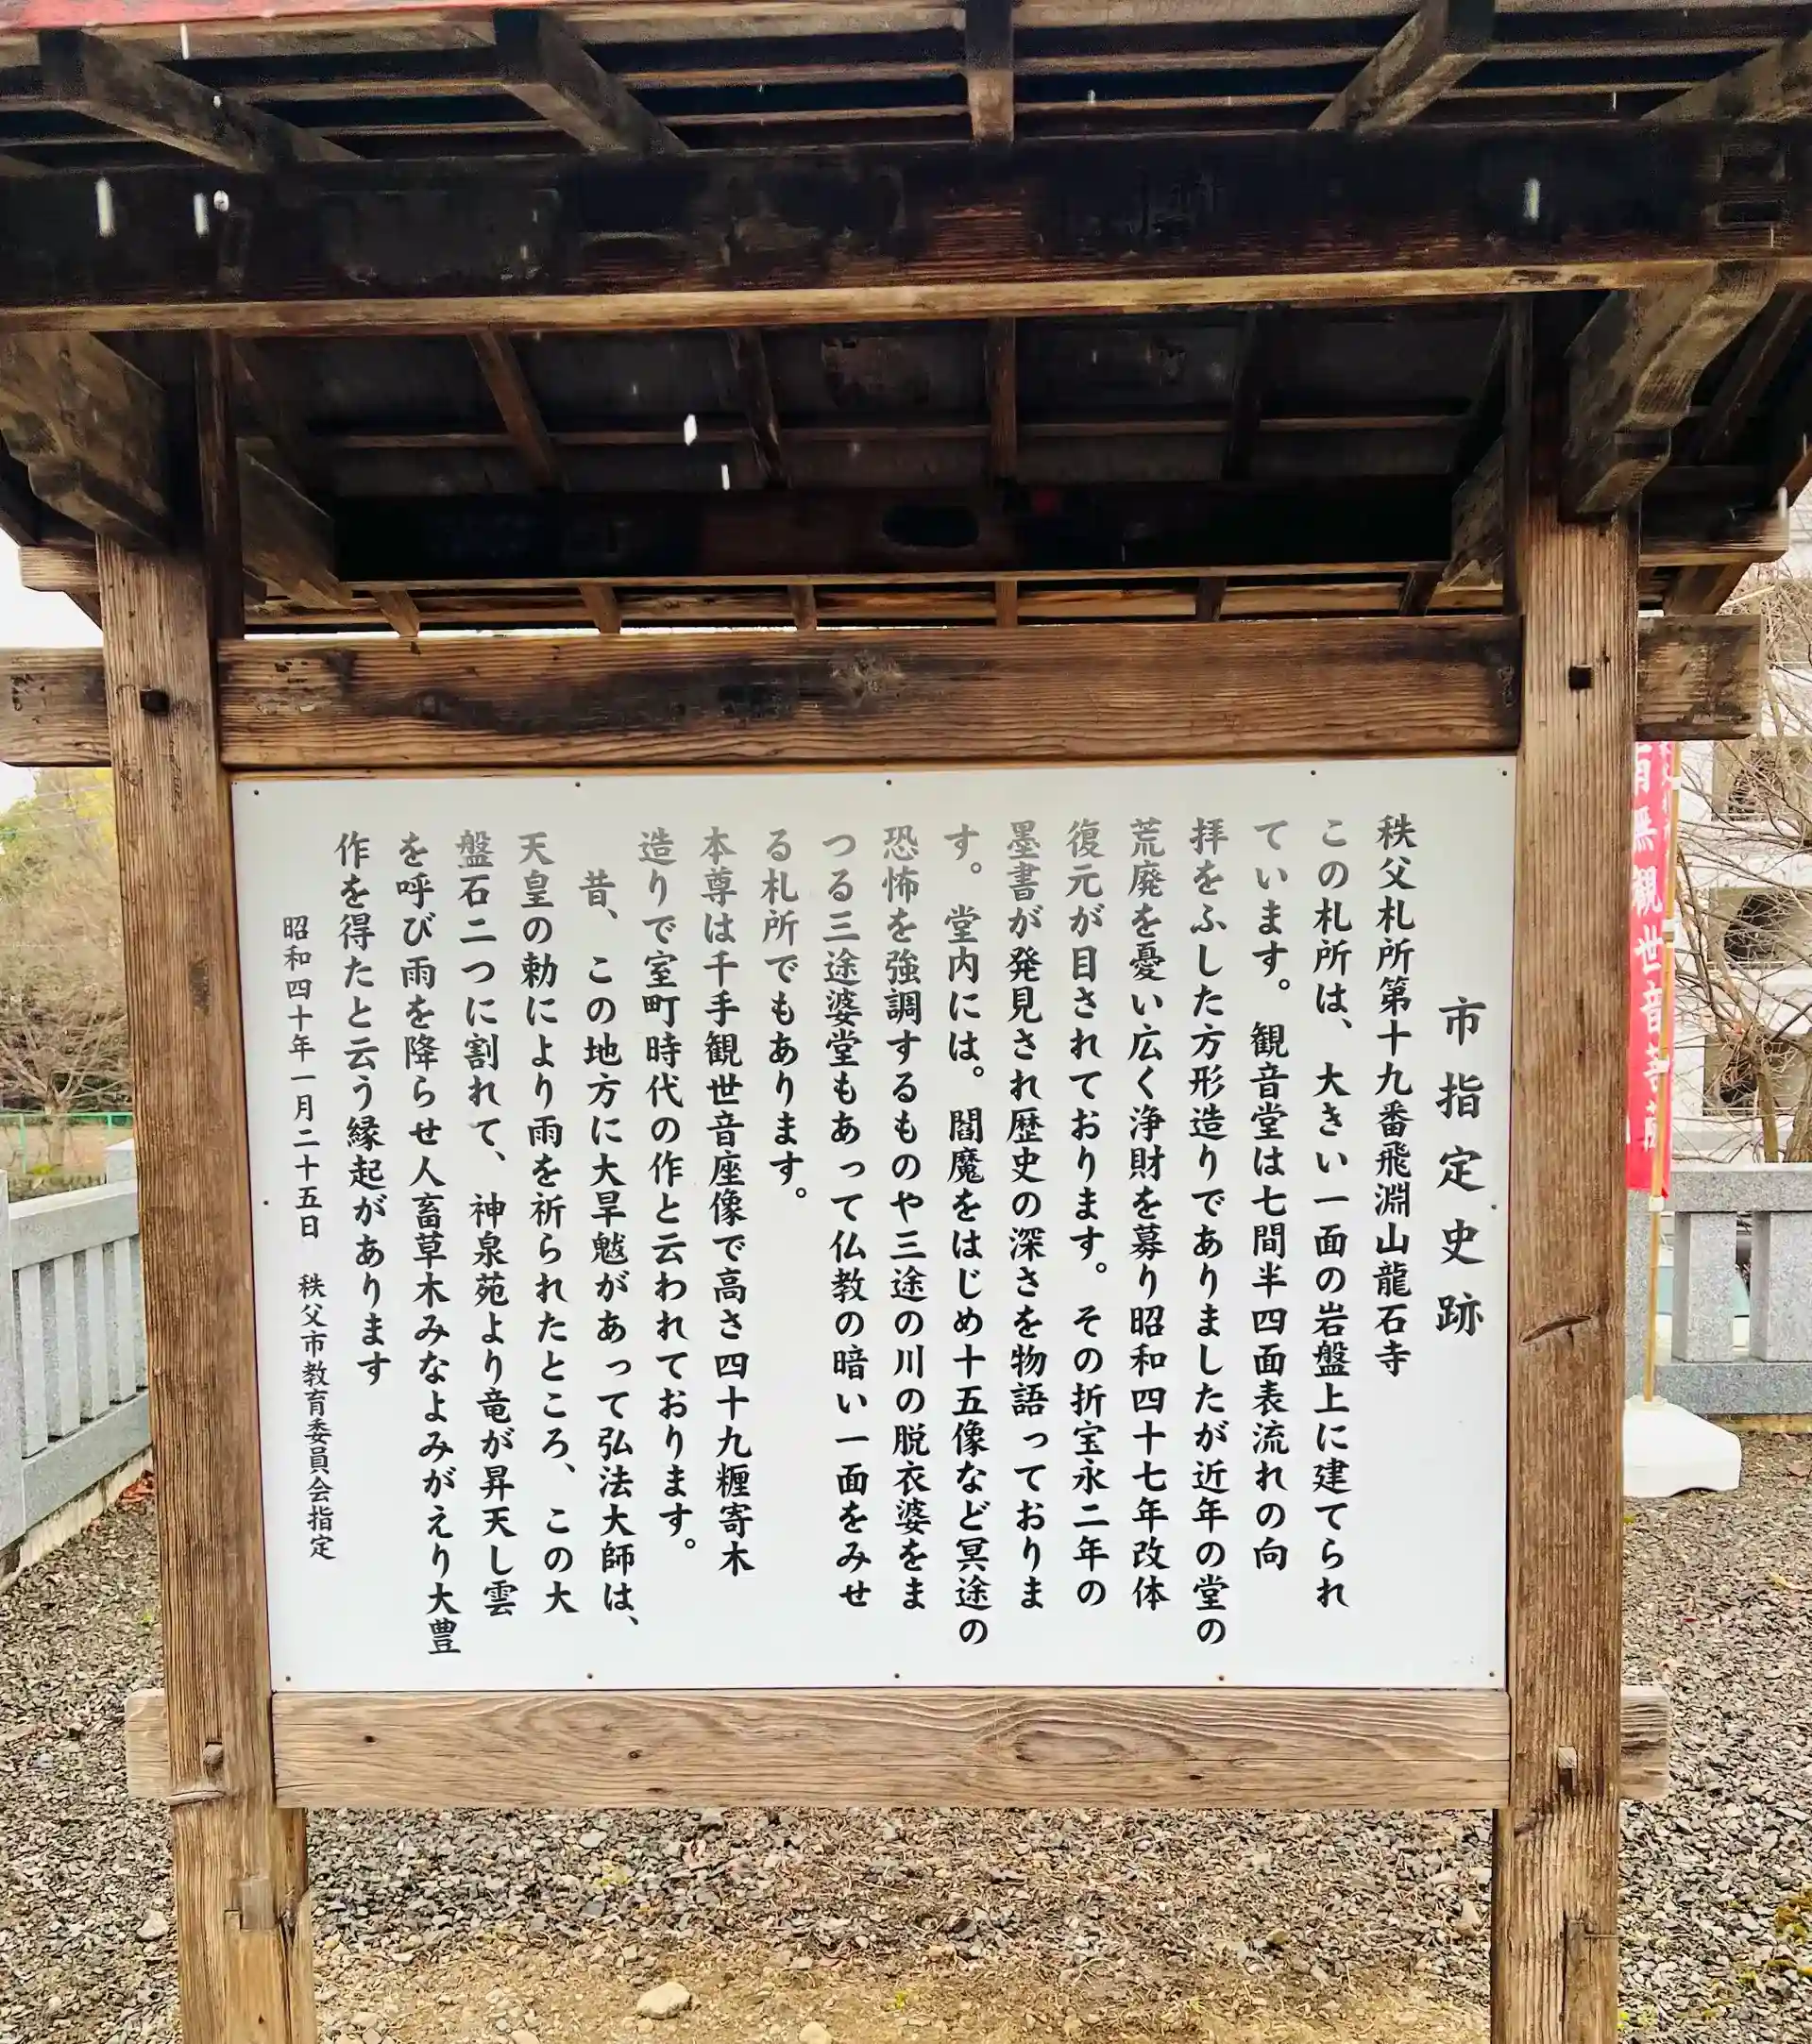 市指定史跡
秩父札所第十九番飛淵山龍石寺
この札所は、大きい一面の岩盤上に建てられ
ています。観音堂は七間半四面表流れの向
拝をふした方形造りでありましたが近年の堂の
荒廃を憂い広く浄財を募り昭和四十七年改体
復元が目されております。その折宝永二年の
墨書が発見され歴史の深さを物語っておりま
す。堂内には。閻魔をはじめ十五像など冥途の
恐怖を強調するものや三途の川の脱衣婆をま
つる三途婆堂もあって仏教の暗い一面をみせ
る札所でもあります。
本尊は千手観世音座像で高さ四十九糎寄木
造りで室町時代の作と云われております。
昔、この地方に大旱魃があって弘法大師は、
天皇の勅により雨を祈られたところ、この大
盤石二つに割れて、神泉苑より竜が昇天し雲
を呼び雨を降らせ人畜草木みなよみがえり大豊
作を得たと云う縁起があります
昭和四十年一月二十五日 秩父市教育委員会指定
無観世音菩薩